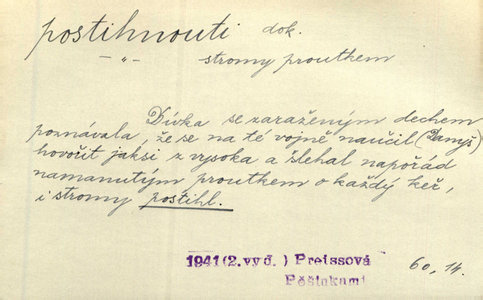 postihnouti dok.
— " — stromy proutkem
Dívka se zaraženým dechem
poznávala, že se na té vojně naučil (Danyš)
hovořit jaksi z vysoka a šlehal napořád
namanutým proutkem o každý keř,
i stromy postihl.
1941(2.vyd.) Preissová
Pěšinkami
60, 14.